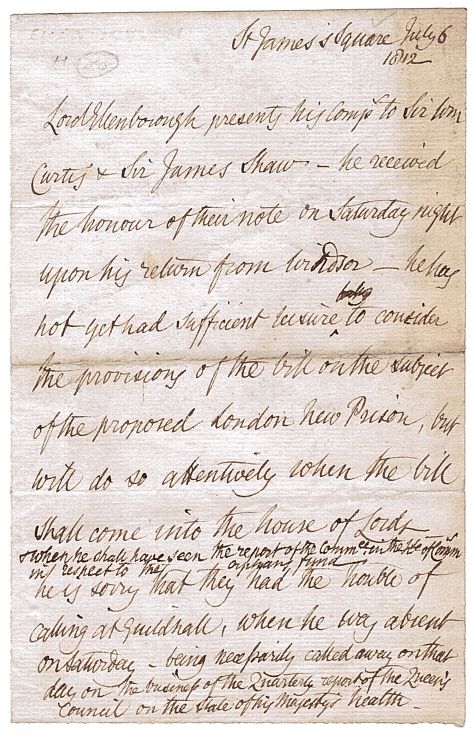 St James's Square July 6
1812
Lord Ellenborough presents his Compts to Sir Wm
Curtis & Sir James Shaw – he received
the honour of their note on Saturday night
upon his return from Windsor – he has
not yet had sufficient leisure to consider
the provisions of the bill on the subject
of the proposed London New Prison, but
will do so attentively when the bill
shall come into the house of Lords
& when he shall have seen the report of the Commee in the He of Comm
in respect to the orphans fund
he is sorry that they had the trouble of
calling at Guildhall, when he was absent
on Saturday – being necessarily called away on that
day on the business of the Quarterly report of the Queen's
Council on the state of his Majesty's health –